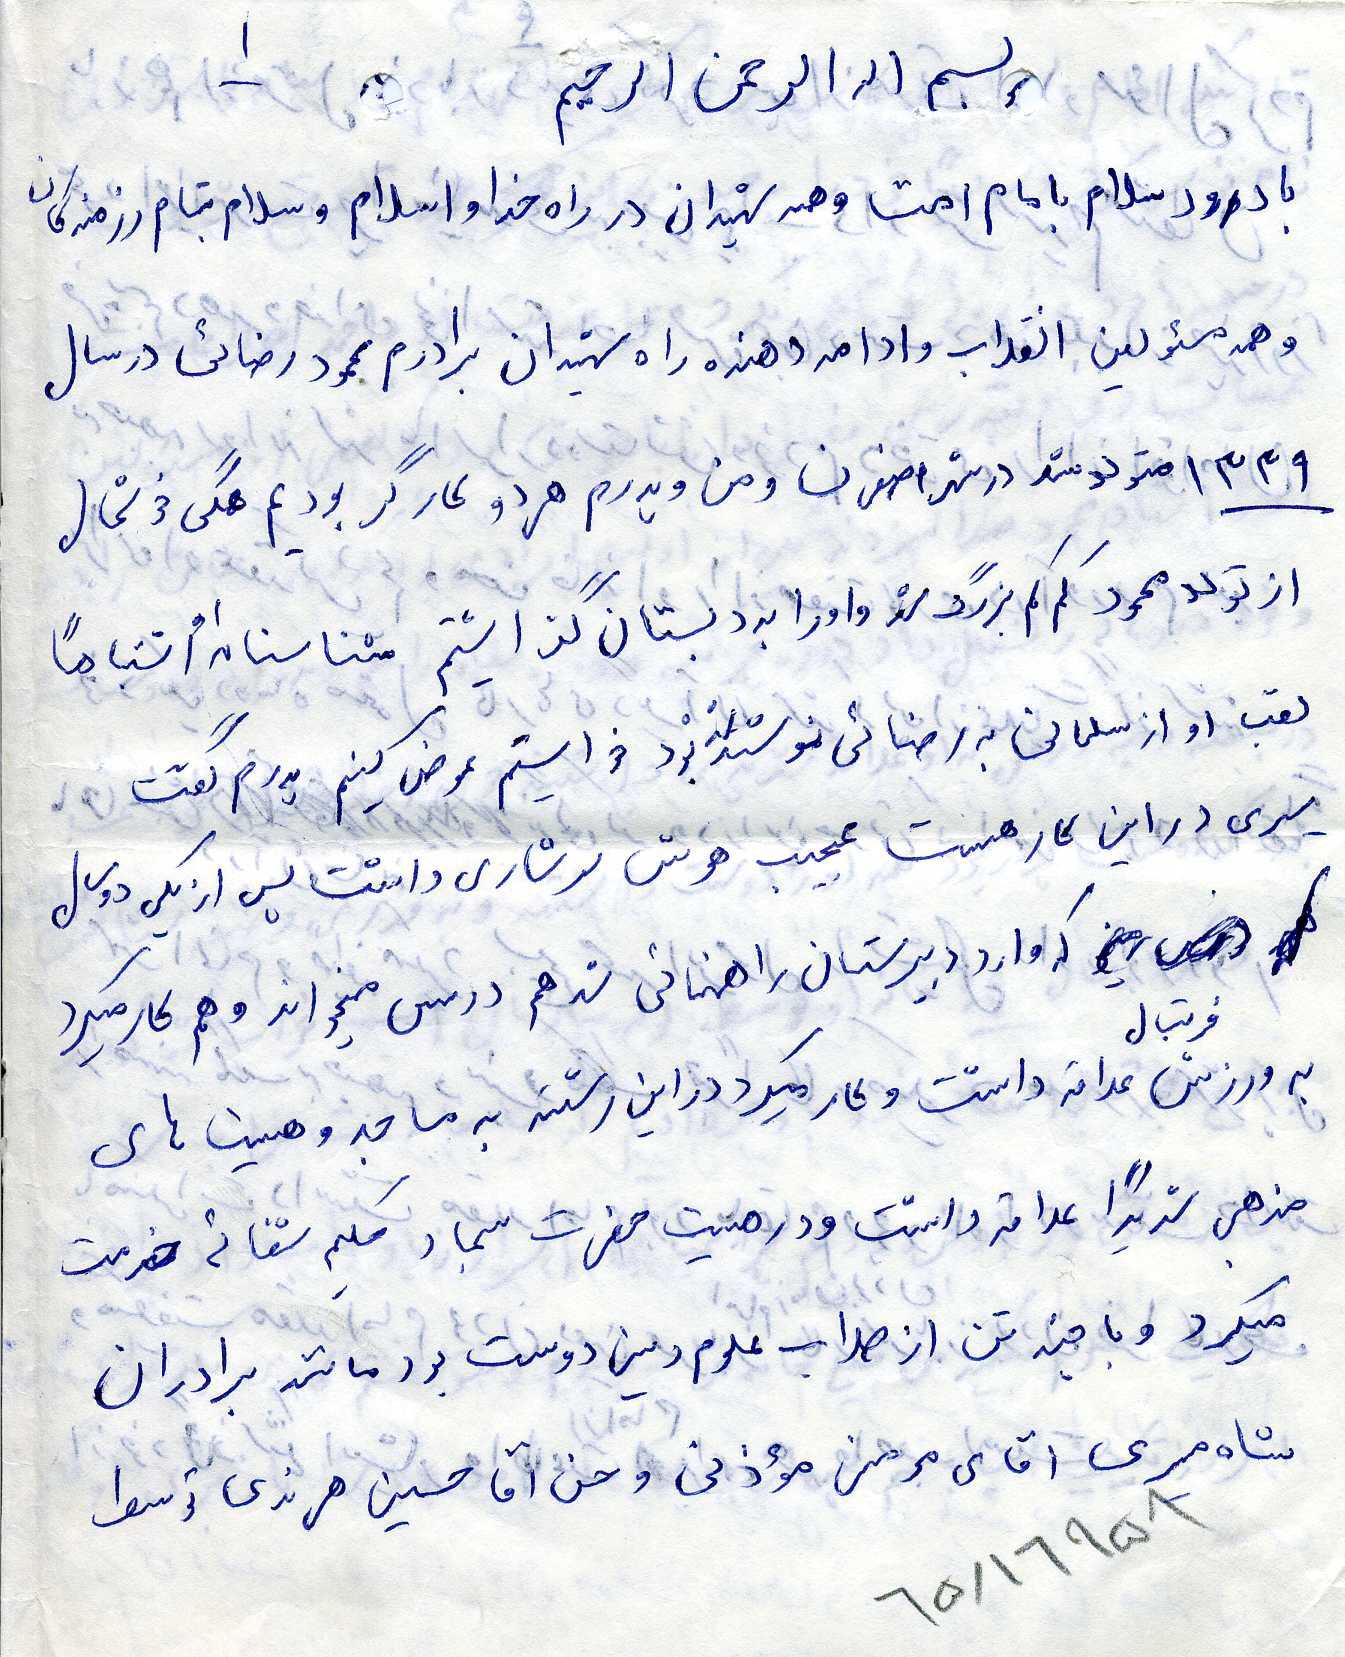 ۱
بسم اله الرحمن الرحیم
با درود سلام بامام امت وهمه شهیدان در راه خدا و اسلام و سلام بتمام رزمندگان
و همه مسئولین انقلاب وادامه دهنده راه شهیدان برادرم محمود رضائی در سال
۱۳۳۹ متولد شد در شهر اصفهان و من و پدرم هر دو کارگر بودیم همگی خوشحال
از تولد محمود کم کم بزرگ شد واورا به دبستان گذاشتیم شناسنامه اشتباهاً
لقب او از سلمانی به رضائی نوشته بود خواستیم عوض کنیم پدرم گفت
سری در این کار هست عجیب هوش سرشاری داشت پس از یکی دو سال
که وارد دبیرستان راهنمائی شد هم درس میخواند و هم کار میکرد
فوتبال
به ورزش علاقه داشت و کار میکرد در این رشته به مساجد و هیئت های
مذهبی شدیداً علاقه داشت و در هیئت حضرت سجاد حکیم شفائی خدمت
میکرد و با چند تن از طلاب علوم دینی دوست بود مانند برادران
شاه میری آقای مؤذنی و حسن آقا حسین هرندی توسط
۶۵/۱۶۹۵۸